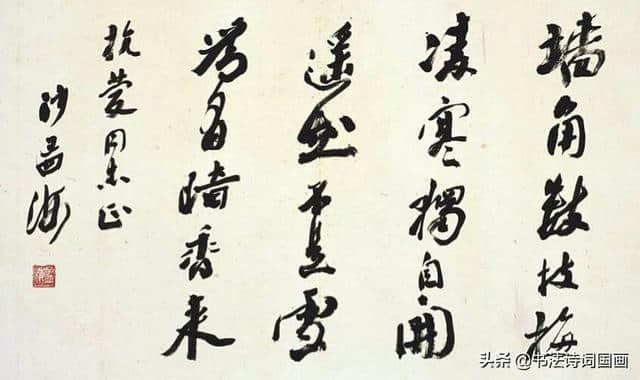 墙角数枝梅
凌寒獨自開
遥知不是雪
為有暗香来
同志正
沙孟海
头条 @书法诗词国画